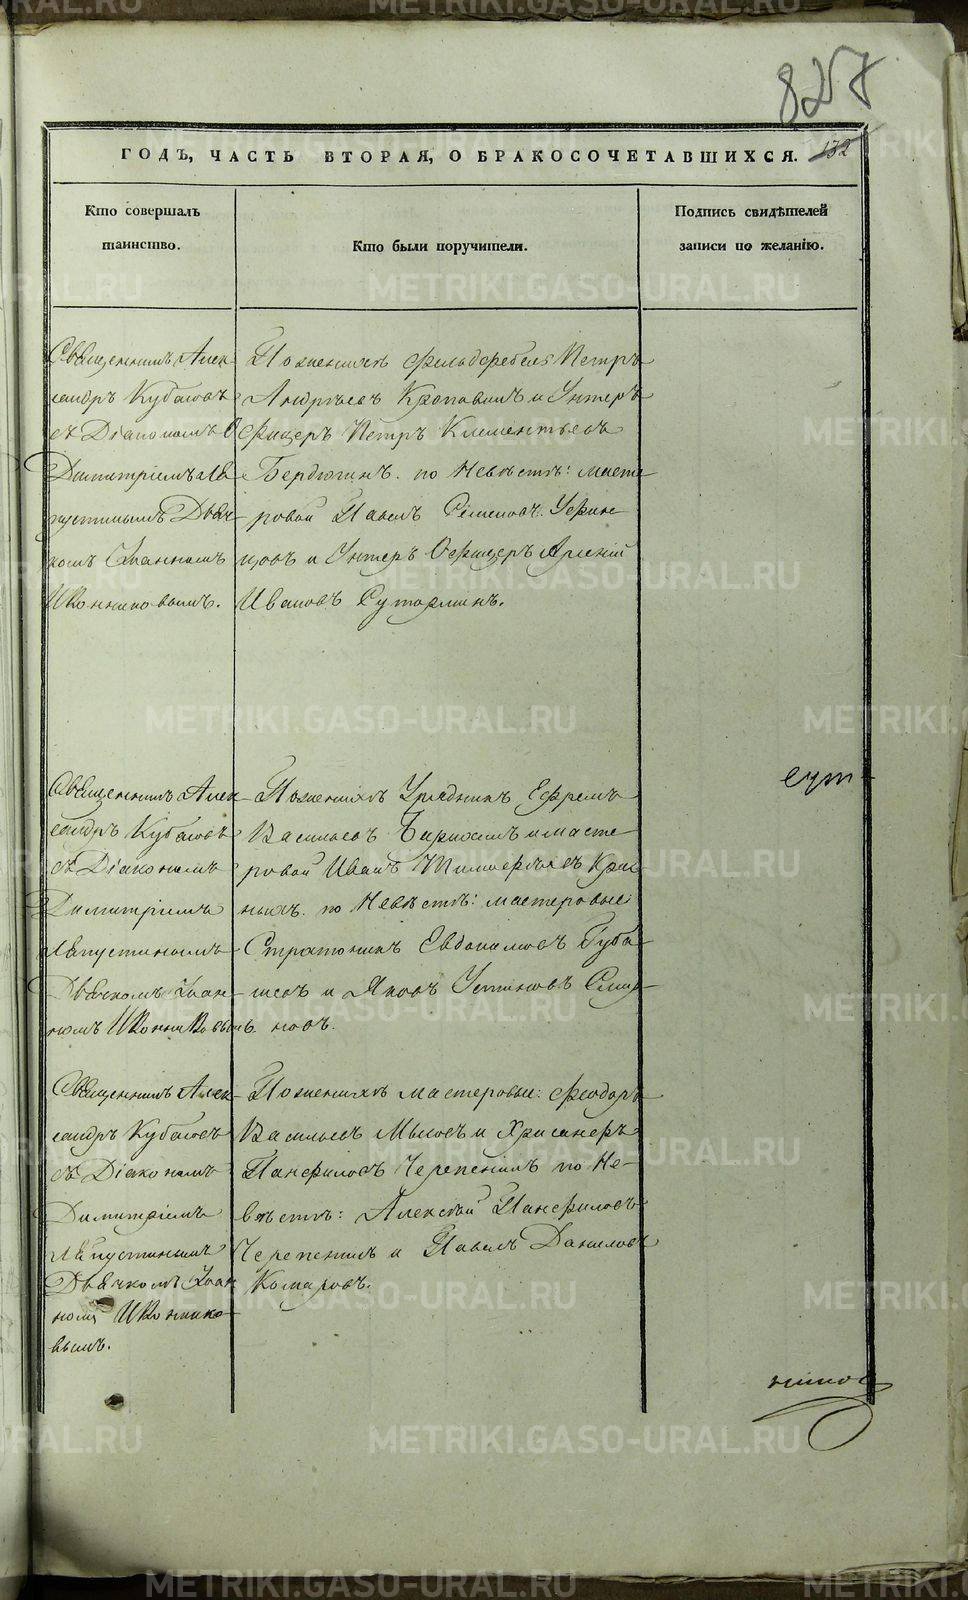 825
ГОДЪ, ЧАСТЬ ВТОРАЯ, О БРАКОСОЧЕТАВШИХСЯ. 132
Кто совершалъ
таинство.
Кто были поручители.
Подпись свидѣтелей
записи по желанію.
Священникъ Алек-
сандръ Кубасовъ
съ Діакономъ
Димитріемъ Ав-
густинымъ Дьяч-
комъ Іоанномъ
Иконниковымъ.
По женихѣ Фельдфебель Петръ
Андреевъ и Унтеръ
Офицеръ Петръ Клементьевъ
Бердюгинъ. по Невѣстѣ: масте-
ровой Павелъ Семеновъ
и Унтеръ Офицеръ
Ивановъ Сутормин.
Священникъ Алек-
сандръ Кубасовъ
съ Діакономъ
Димитріемъ
Августинымъ
Дьячкомъ Іоан-
номъ Иконниковымъ
По женихѣ Урядникъ Ефремъ
Васильевъ и масте-
ровой Иванъ Тимофеевъ
по Невѣстѣ: мастеровые
Стратоникъ Евдокимовъ Губа-
шевъ и Яковъ Устиновъ Смир-
новъ.
сут-
Священникъ Алек-
сандръ Кубасовъ
съ Діакономъ
Димитріемъ
Августинымъ
Дьячкомъ Іоан-
номъ Иконнико-
вымъ.
По женихѣ мастеровые: Феодоръ
Васильевъ Мысовъ и Хрисанфъ
Панфиловъ Черепенинъ по Не-
вѣстѣ: Алексѣй Панфиловъ
Черепенинъ и Павелъ Даниловъ
Комаровъ.
METRIKI.GASO-URAL.RU